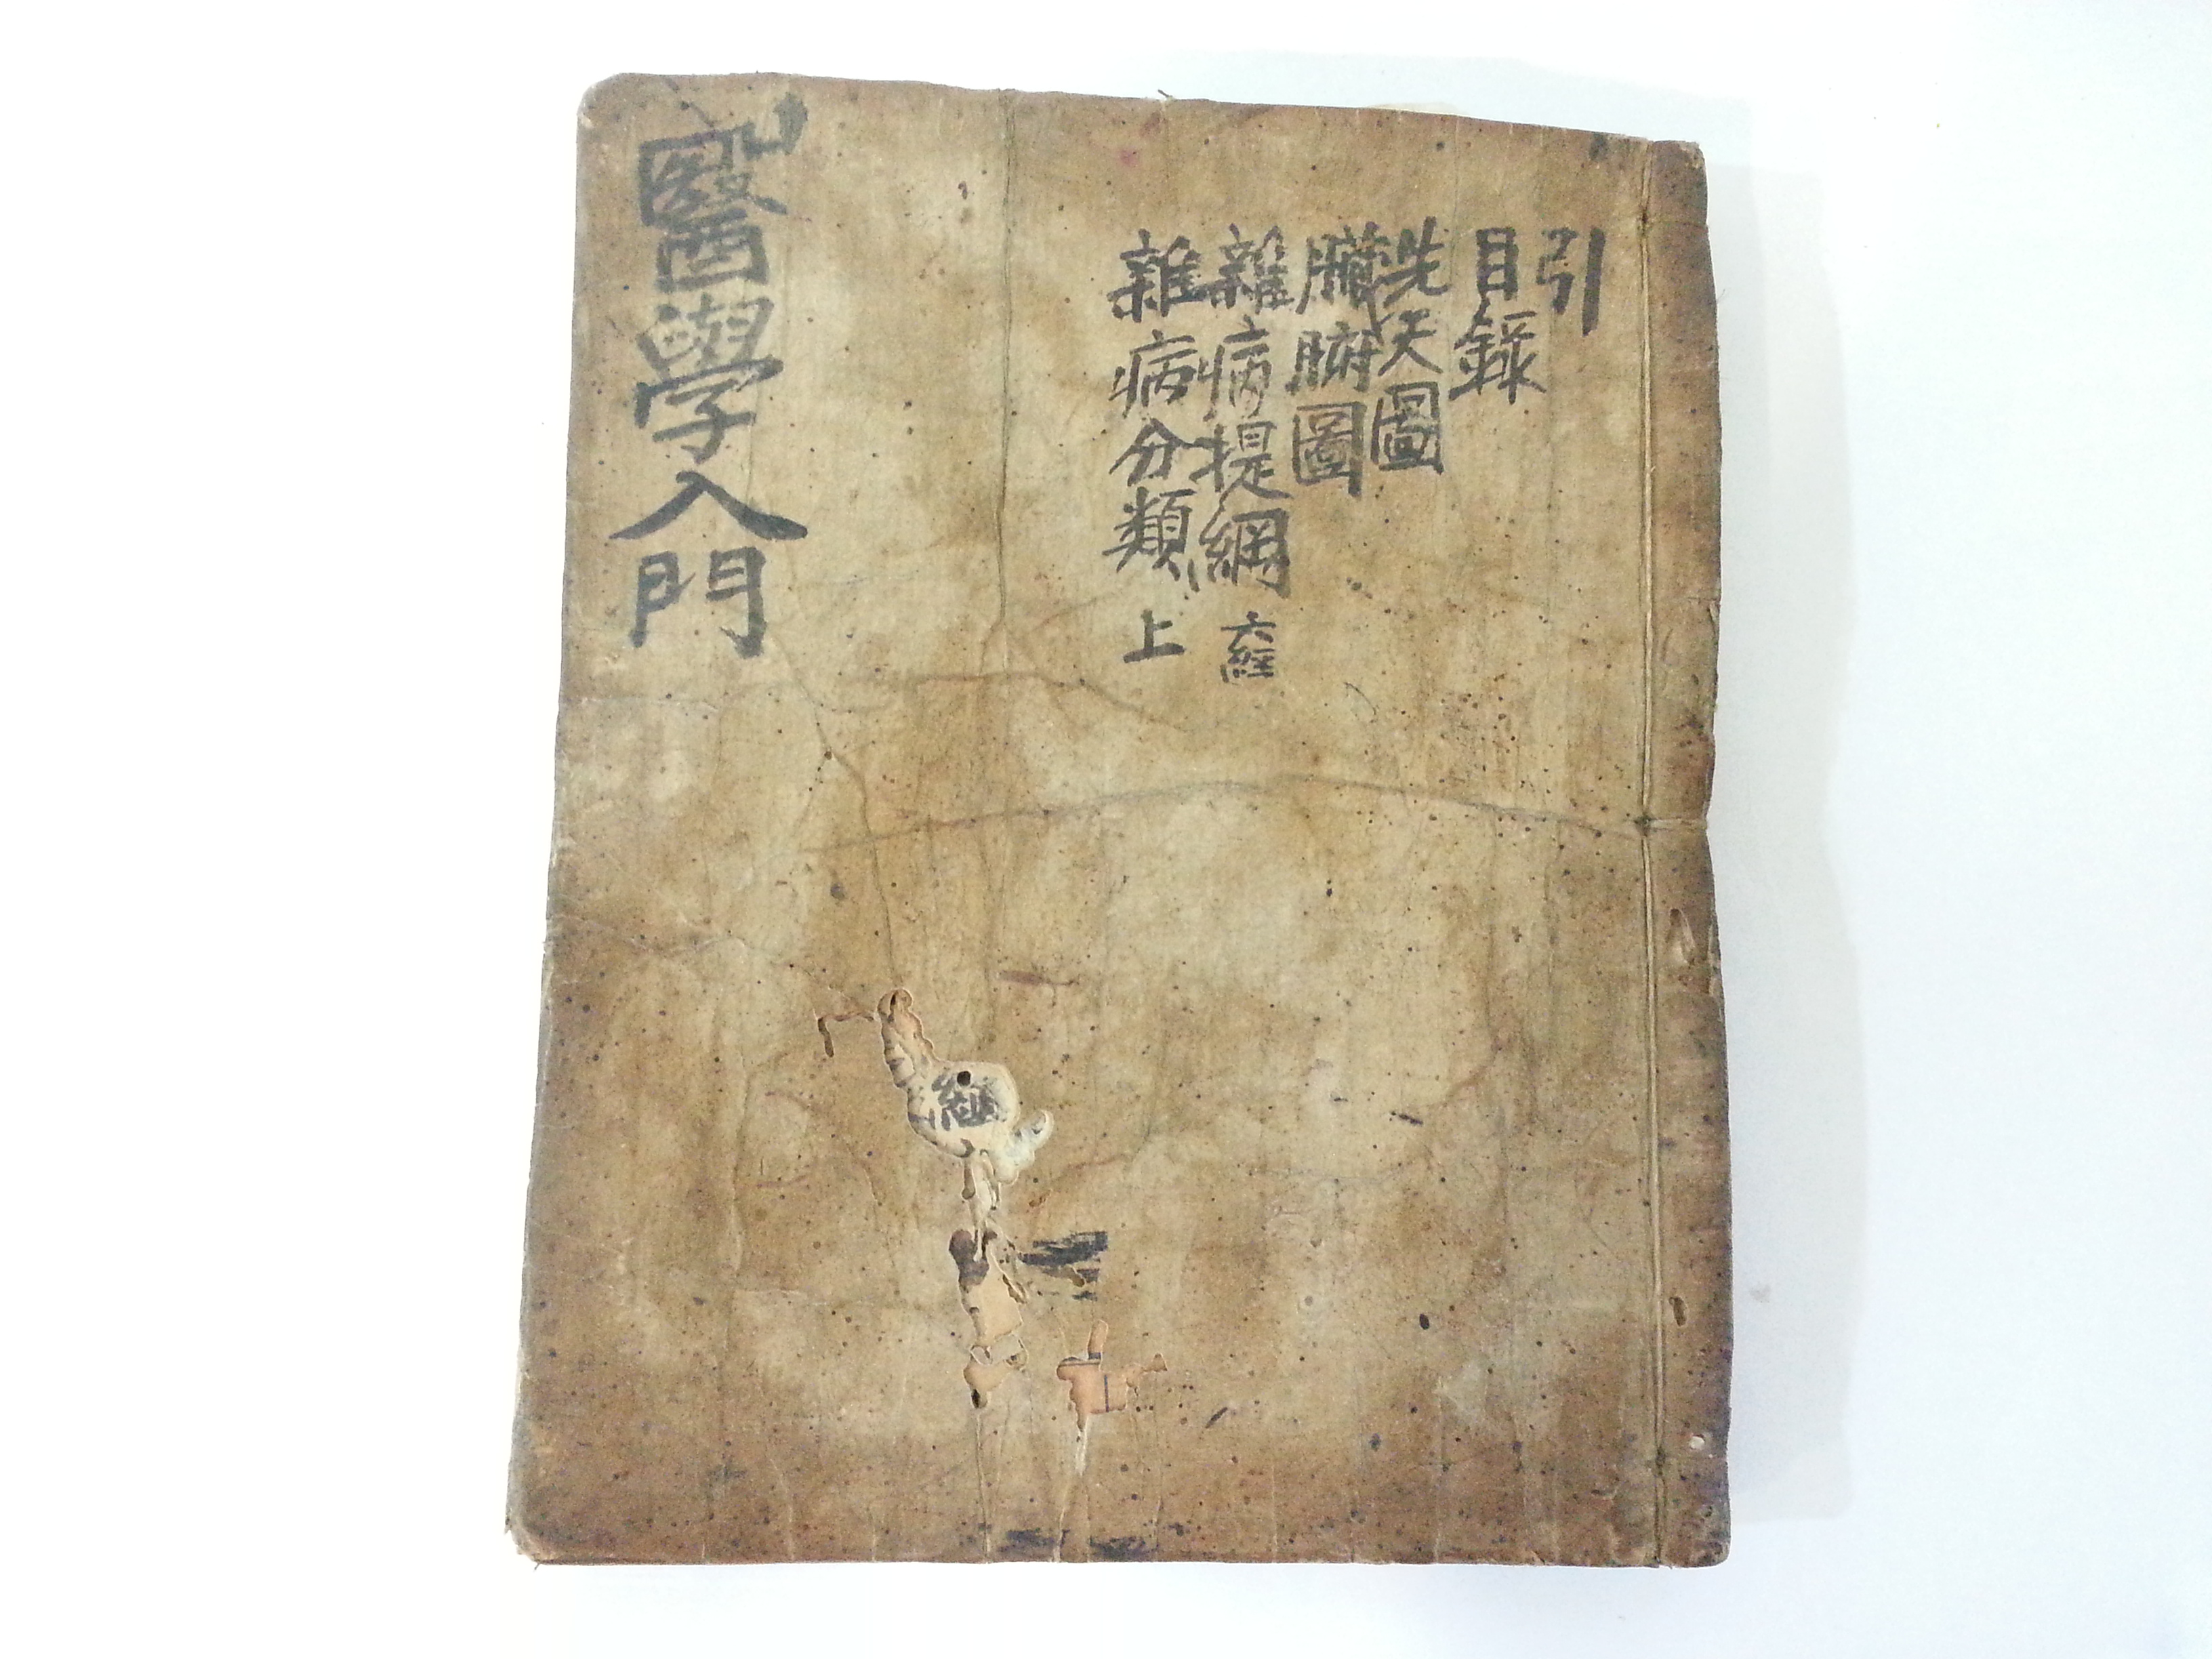 引
目錄
先天圖
臟腑圖
雜病提綱 六經
雜病分類 上
醫學入門